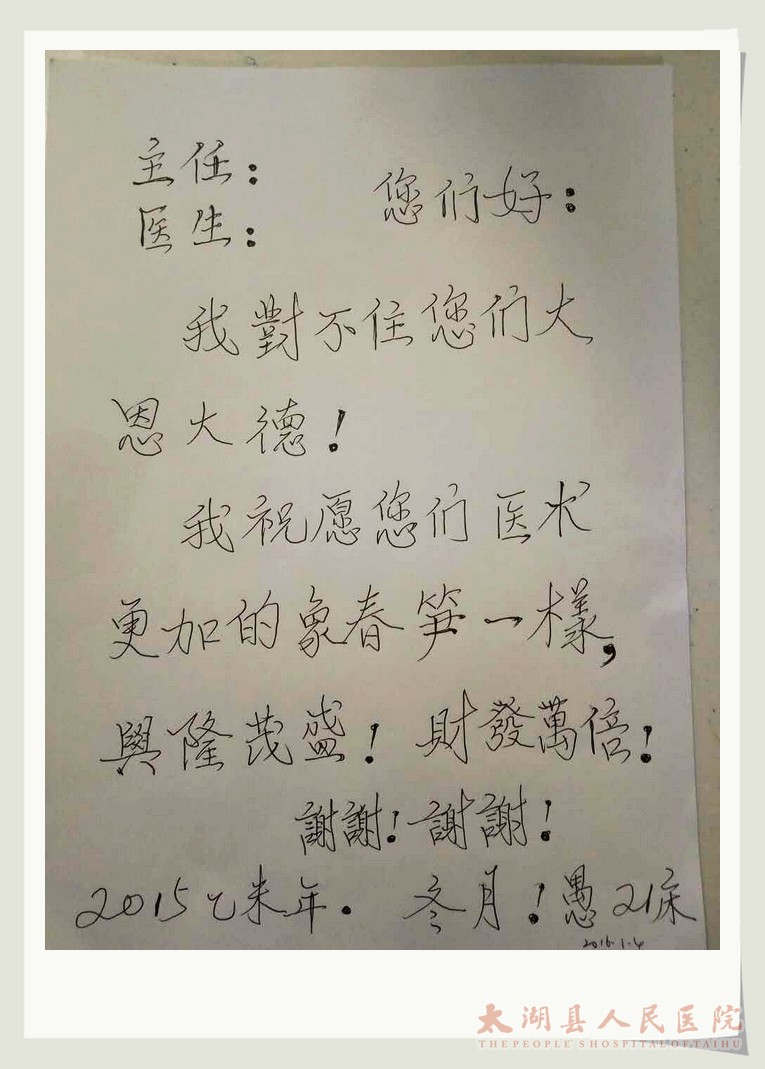 主任：
医生：
您们好：
我對不住您们大
恩大德！
我祝愿您们医术
更加的象春笋一樣，
興隆茂盛！財發萬倍！
謝謝！謝謝！
2015乙未年．冬月！愚21床
2016.1.4
太湖县人民医院
THE PEOPLE'S HOSPITAL OF TAIHU